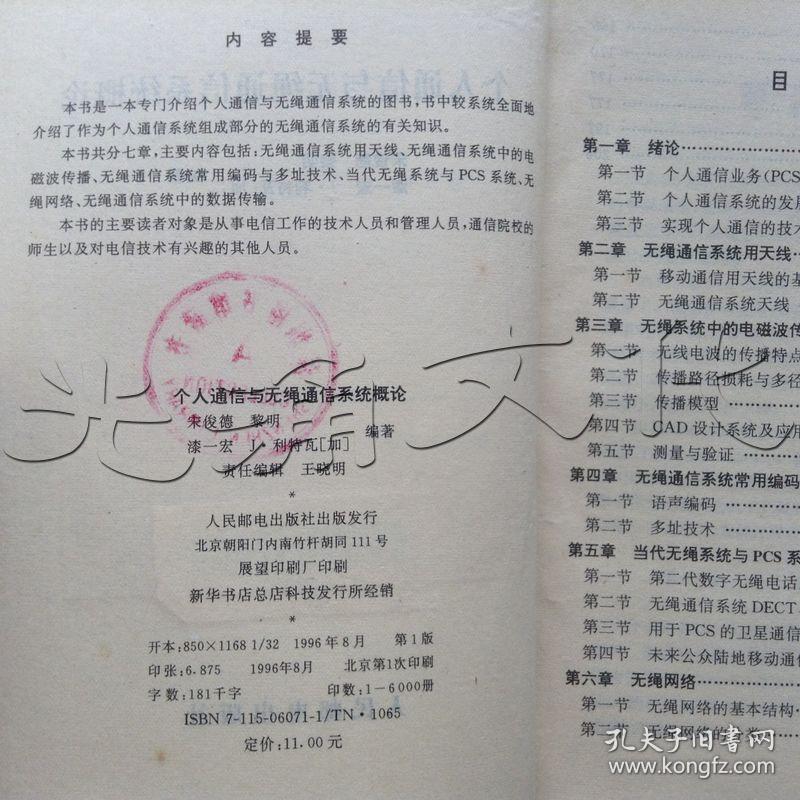 内容提要
本书是一本专门介绍个人通信与无绳通信系统的图书,书中较系统全面地
介绍了作为个人通信系统组成部分的无绳通信系统的有关知识。
本书共分七章,主要内容包括:无绳通信系统用天线、无绳通信系统中的电
磁波传播、无绳通信系统常用编码与多址技术、当代无绳系统与PCS系统、无
绳网络、无绳通信系统中的数据传输。
本书的主要读者对象是从事电信工作的技术人员和管理人员,通信院校的
师生以及对电信技术有兴趣的其他人员。
个人通信与无绳通信系统概论
朱俊德 黎明
漆一宏 J·利特瓦[加] 编著
责任编辑 王晓明
*
人民邮电出版社出版发行
北京朝阳门内南竹杆胡同111号
展望印刷厂印刷
新华书店总店科技发行所经销
*
开本:850×1168 1/32 1996年8月 第1版
印张:6.875 1996年8月 北京第1次印刷
字数:181千字 印数:1-6000册
ISBN 7-115-06071-1/TN·1065
定价:11.00元
目
第一章 绪论
第一节 个人通信业务(PCS
第二节 个人通信系统的发
第三节 实现个人通信的技
第二章 无绳通信系统用天线
第一节 移动通信用天线的基
第二节 无绳通信系统天线
第三章 无绳系统中的电磁波传
第一节 无线电波的传播特点
第二节 传播路径损耗与多径
第三节 传播模型
第四节 CAD设计系统及应用
第五节 测量与验证
第四章 无绳通信系统常用编码
第一节 语声编码
第二节 多址技术
第五章 当代无绳系统与PCS系
第一节 第二代数字无绳电话
第二节 无绳通信系统DECT
第三节 用于PCS的卫星通信
第四节 未来公众陆地移动通
第六章 无绳网络
第一节 无绳网络的基本结构
第二节 无绳网络的分类
孔夫子旧书网
www.kongfz.com